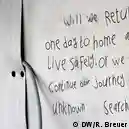 Will we Retu
one day to home a
live Safely. or we
Continue our Journey
Unknown Search
© DW/R. Breuer